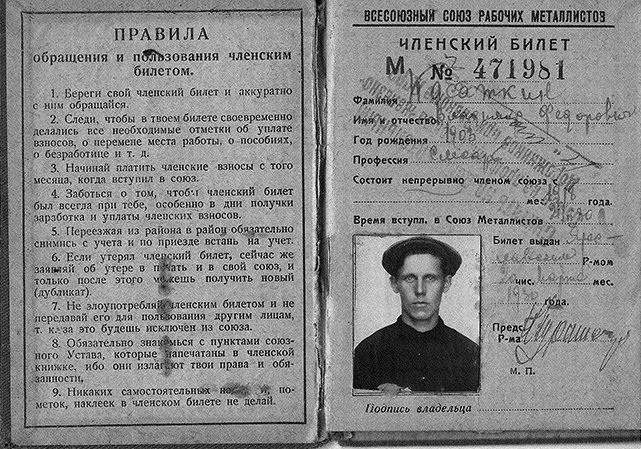 ПРАВИЛА
обращения и пользования членским
билетом.
1. Береги свой членский билет и аккуратно
с ним обращайся.
2. Следи, чтобы в твоем билете своевременно
делались все необходимые отметки об уплате
взносов, о перемене места работы, о пособиях,
о безработице и т. д.
3. Начинай платить членские взносы с того
месяца, когда вступил в союз.
4. Заботься о том, чтобы членский билет
был всегда при тебе, особенно в дни получки
заработка и уплаты членских взносов.
5. Переезжая из района в район обязательно
снимись с учета и по приезде встань на учет.
6. Если утерял членский билет, сейчас же
заявляй об утере в печать и в свой союз, и
только после этого можешь получить новый
(дубликат).
7. Не злоупотребляй членским билетом и не
передавай его для пользования другим лицам,
т. к. за это будешь исключен из союза.
8. Обязательно знакомься с пунктами союз-
ного Устава, которые напечатаны в членской
книжке, ибо они излагают твои права и обя-
занности.
9. Никаких самостоятельных по-
меток, наклеек в членском билете не делай.
ВСЕСОЮЗНЫЙ СОЮЗ РАБОЧИХ МЕТАЛЛИСТОВ
ЧЛЕНСКИЙ БИЛЕТ
М № 471981
Фамилия Касаткин
Имя и отчество Федорович
Год рождения 1903
Профессия слесарь
Состоит непрерывно членом союза с
года.
Время вступл. в Союз Металлистов
Билет выдан Яро-
славским Р-мом
марта мес.
1930 года.
Предс.
Р-ма
М. П.
Подпись владельца